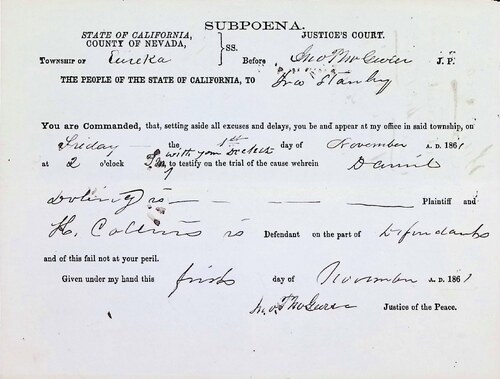 SUBPOENA.
STATE OF CALIFORNIA, JUSTICE'S COURT.
COUNTY OF NEVADA, } SS.
TOWNSHIP OF Eureka Before J. P.
THE PEOPLE OF THE STATE OF CALIFORNIA, TO Stanley
You are Commanded, that, setting aside all excuses and delays, you be and appear at my office in said township, on
Friday the 1st day of November A. D. 1861
with your
at 2 o'clock P m, to testify on the trial of the cause wherein Daniel
is Plaintiff and
H. Collins is Defendant on the part of Defendants
and of this fail not at your peril.
Given under my hand this first day of November A. D. 1861
Justice of the Peace.